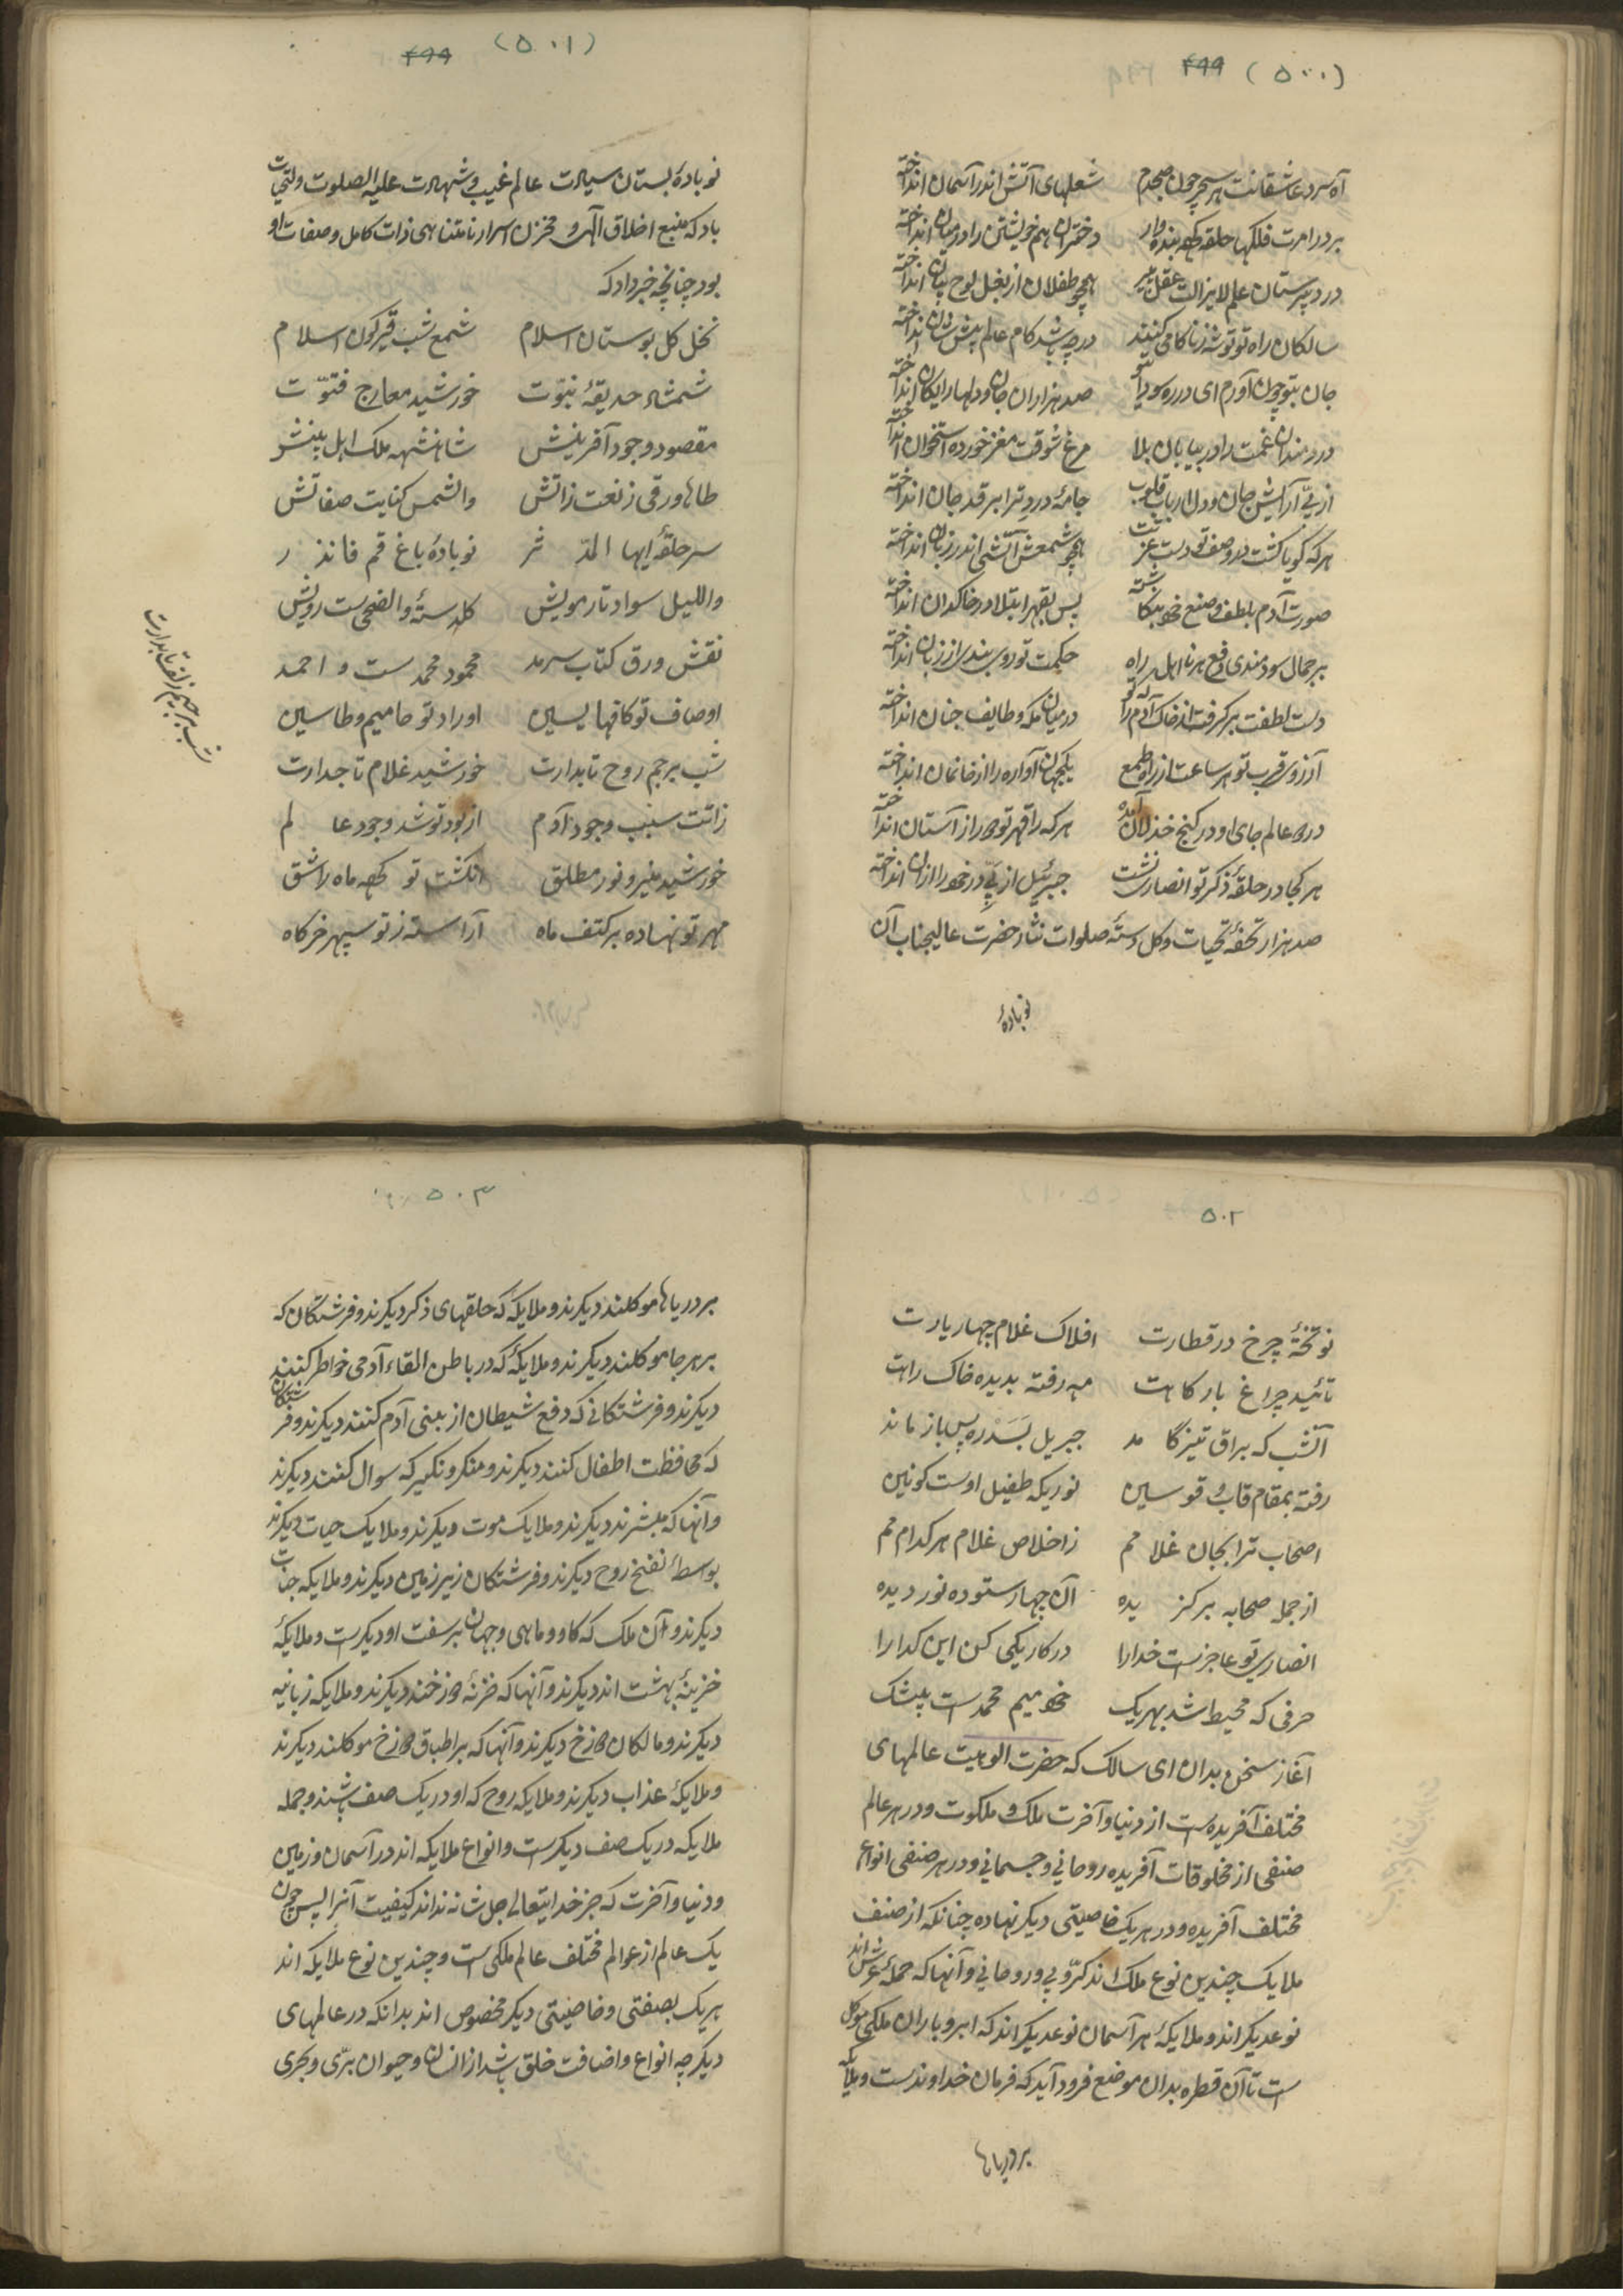 (۵۰۰) ۴۹۹
آه سرد عاشقانت هر سحر چون صبحدم شعلهای آتش اندر آسمان انداخته
بر در امرت فلکها حلقه کهه بنده وار دختران هم خویشتن را در میان انداخته
در دبیرستان علم لایزالت عقل پیر همچو طفلان از بغل لوح بیان انداخته
سالکان راه تو توشه ز ناکامی کنند در چه باشد کام عالم پیش شان انداخته
جان بتو چون آورم ای در ره سودای تو صد هزاران جان و دلها رایکان انداخته
دردمندان غمت را در بیابان بلا مرغ شوقت مغز خورده استخوان انداخته
از پی آرایش جان و دل ارباب قلوب جامهٔ درد ترا بر قد جان انداخته
هر که کویا کشت در وصف تو دست عزتت همچو شمعش آتشی اندر زبان انداخته
صورت آدم بلطف و صنع خود بنکاشته پس بقهر ابتلا در خاکدان انداخته
بر جمال سودمندی دفع هر نااهل راه حکمت تو روی بندی از زبان انداخته
دست لطفت بر کرفت اند خاک آدم را که او در میان مکه و طایف جنان انداخته
آرزوی قرب تو هر ساعت از راه طمع یکجهان آواره را از خانمان انداخته
در دو عالم جای او در کنج خذلان آمده هر که را قهر تو دور از آستان انداخته
هر کجا در حلقهٔ ذکر تو انصاری نشست جبرئیل از پی در خود را از ان انداخته
صد هزار تحفهٔ تحیات و کل دستهٔ صلوات نثار حضرت عالیجناب آن
نوبادهٔ
(۵۰۱) ۴۹۹
نوبادهٔ بستان سیادت عالم غیب و شهادت علیه الصلوت والتحیات
باد که منبع اخلاق الهی و مخزن اسرار نامتناهی ذات کامل و صفات او
بود چنانچه خبر داد که
نخل کل بوستان اسلام شمع شب قیرکون اسلام
شمشاد حدیقهٔ نبوّت خورشید معارج فتوّت
مقصود وجود آفرینش شاهنشهه ملک اهل بینش
طاها ورقی ز نعت ذاتش والشمس کنایت صفاتش
سر حلقهٔ ایها المدّثر نوبادهٔ باغ قم فانذر
واللیل سواد تار مویش کلدستهٔ والضحی ست رویش
نقش ورق کتاب سرمد محمود محمد ست و احمد
اوصاف تو کافها یسین اوراد تو حامیم و طاسین
شب پرچم روح تابدارت خورشید غلام تاجدارت
ذاتت سبب وجود آدم از بود تو شد وجود عالم
خورشید منیر و نور مطلق انکشت تو کهه ماه را شق
مهر تو نهاده بر کتف ماه آراسته ز تو سپهر خرکاه
شب پرچم زلف تابدارت
۵۰۲
نو تختهٔ چرخ در قطارت افلاک غلام چهار یارت
تائید چراغ بارکاهت مه رفته بدیده خاک راهت
آنشب که براق تیز کامد جبریل بسدره پس باز ماند
رفته بمقام قاب قوسین نوریکه طفیل اوست کونین
اصحاب ترا بجان غلامم ز اخلاص غلام هر کدامم
از جمله صحابه برکزیده آن چهار ستوده نور دیده
انصاری تو عاجزست خدارا در کار یکی کن این کدا را
حرفی که محیط شد بهر یک خود میم محمدست بیشک
آغاز سخن بدان ای سالک که حضرت الوهیت عالمهای
مختلف آفریده است از دنیا و آخرت ملک و ملکوت و در هر عالم
صنفی از مخلوقات آفریده روحانی و جسمانی و در هر صنفی انواع
مختلف آفریده و در هر یک خاصیتی دیکر نهاده چنانکه از صنف
ملایک چندین نوع ملک اند کرّوبی و روحانی و آنها که حملهٔ عرش اند
نوعدیکر اند و ملایکهٔ هر آسمان نوعدیکر اند که ابر و باران ملکی موکل
است تا آن قطره بدان موضع فرود آید که فرمان خداوندست و ملایکه
بر دریاها
۵۰۳
بر دریاها موکلند دیکرند و ملایکه که حلقهای ذکر دیکرند و فرشتکان که
بر هر جا موکلند دیکرند و ملایکهٔ که در باطن القاء آدمی خواطر کنند
دیکرند و فرشتکانی که دفع شیطان از بینی آدم کنند دیکرند و فرشتکان
که محافظت اطفال کنند دیکرند و منکر و نکیر که سوال کنند دیکرند
و آنها که مبشرند دیکرند و ملایک موت دیکرند و ملایک حیات دیکرند
بواسطهٔ نفخ روح دیکرند و فرشتکان زیر زمین دیکرند و ملایکه جنات
دیکرند و آن ملک که کاو و ماهی و جهان بر سفت او دیکرست و ملایکهٔ
خزینهٔ بهشت اند دیکرند و آنها که خزنهٔ دوزخند دیکرند و ملایکه زبانیه
دیکرند و مالکان دوزخ دیکرند و آنها که بر اطباق دوزخ موکلند دیکرند
و ملایکهٔ عذاب دیکرند و ملایکه روح که او در یک صف باشند و جمله
ملایکه در یک صف دیکرست و انواع ملایکه اند در آسمان و زمین
و دنیا و آخرت که جز خدایتعالی جل شانه نداند کیفیت آنرا پس چون
یک عالم از عوالم مختلف عالم ملکی است و چندین نوع ملایکه اند
هر یک بصفتی و خاصیتی دیکر مخصوص اند بدانکه در عالمهای
دیکر چه انواع و اضافت خلق باشد از انسان و حیوان برّی و بحری